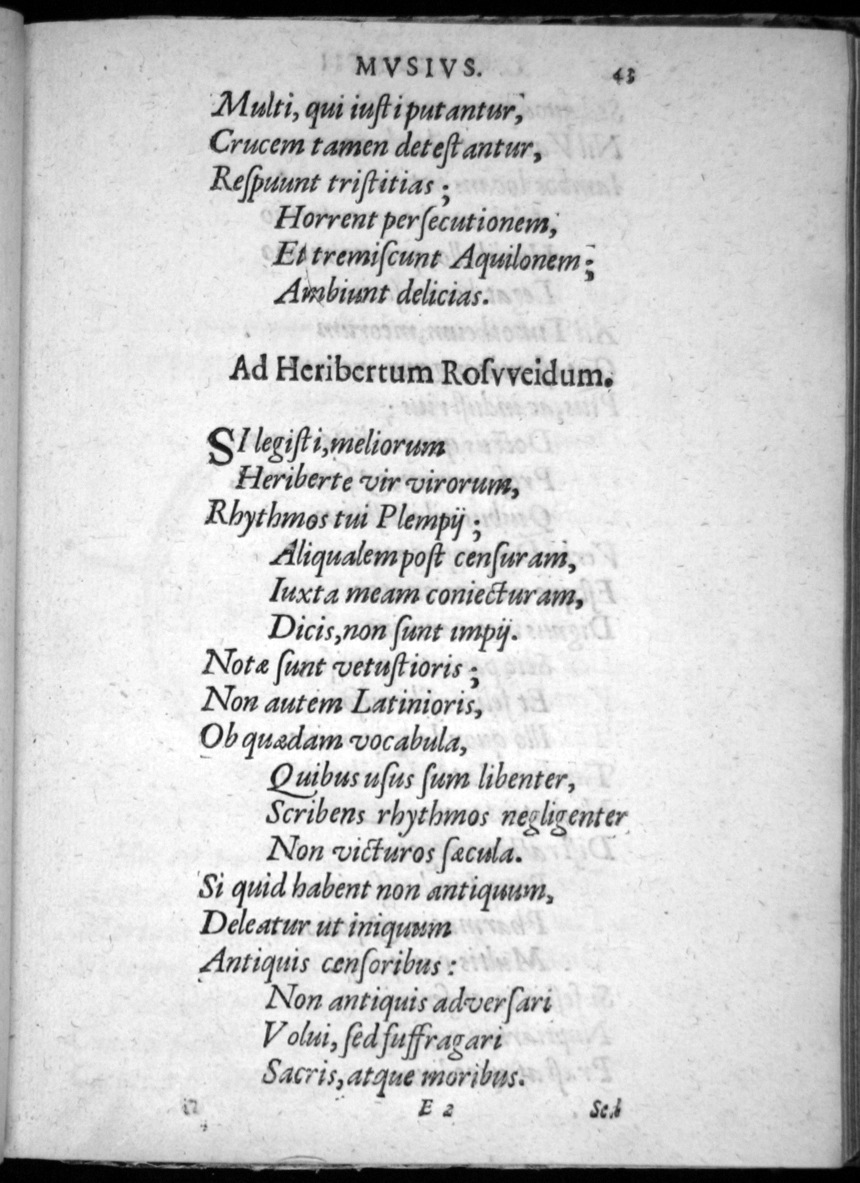 MVSIVS. 43
Multi, qui iuſti putantur,
Crucem tamen deteſtantur,
Reſpuunt triſtitias;
Horrent perſecutionem,
Et tremiſcunt Aquilonem;
Ambiunt delicias.
Ad Heribertum Roſvveidum.
SI legiſti, meliorum
Heriberte vir virorum,
Rhythmos tui Plempij;
Aliqualem poſt cenſuram,
Iuxta meam coniecturam,
Dicis, non ſunt impij.
Notæ ſunt vetuſtioris;
Non autem Latinioris,
Ob quædam vocabula,
Quibus uſus ſum libenter,
Scribens rhythmos negligenter
Non victuros ſæcula.
Si quid habent non antiquum,
Deleatur ut iniquum
Antiquis cenſoribus:
Non antiquis adverſari
Volui, ſed ſuffragari
Sacris, atque moribus.
E 2 Sed